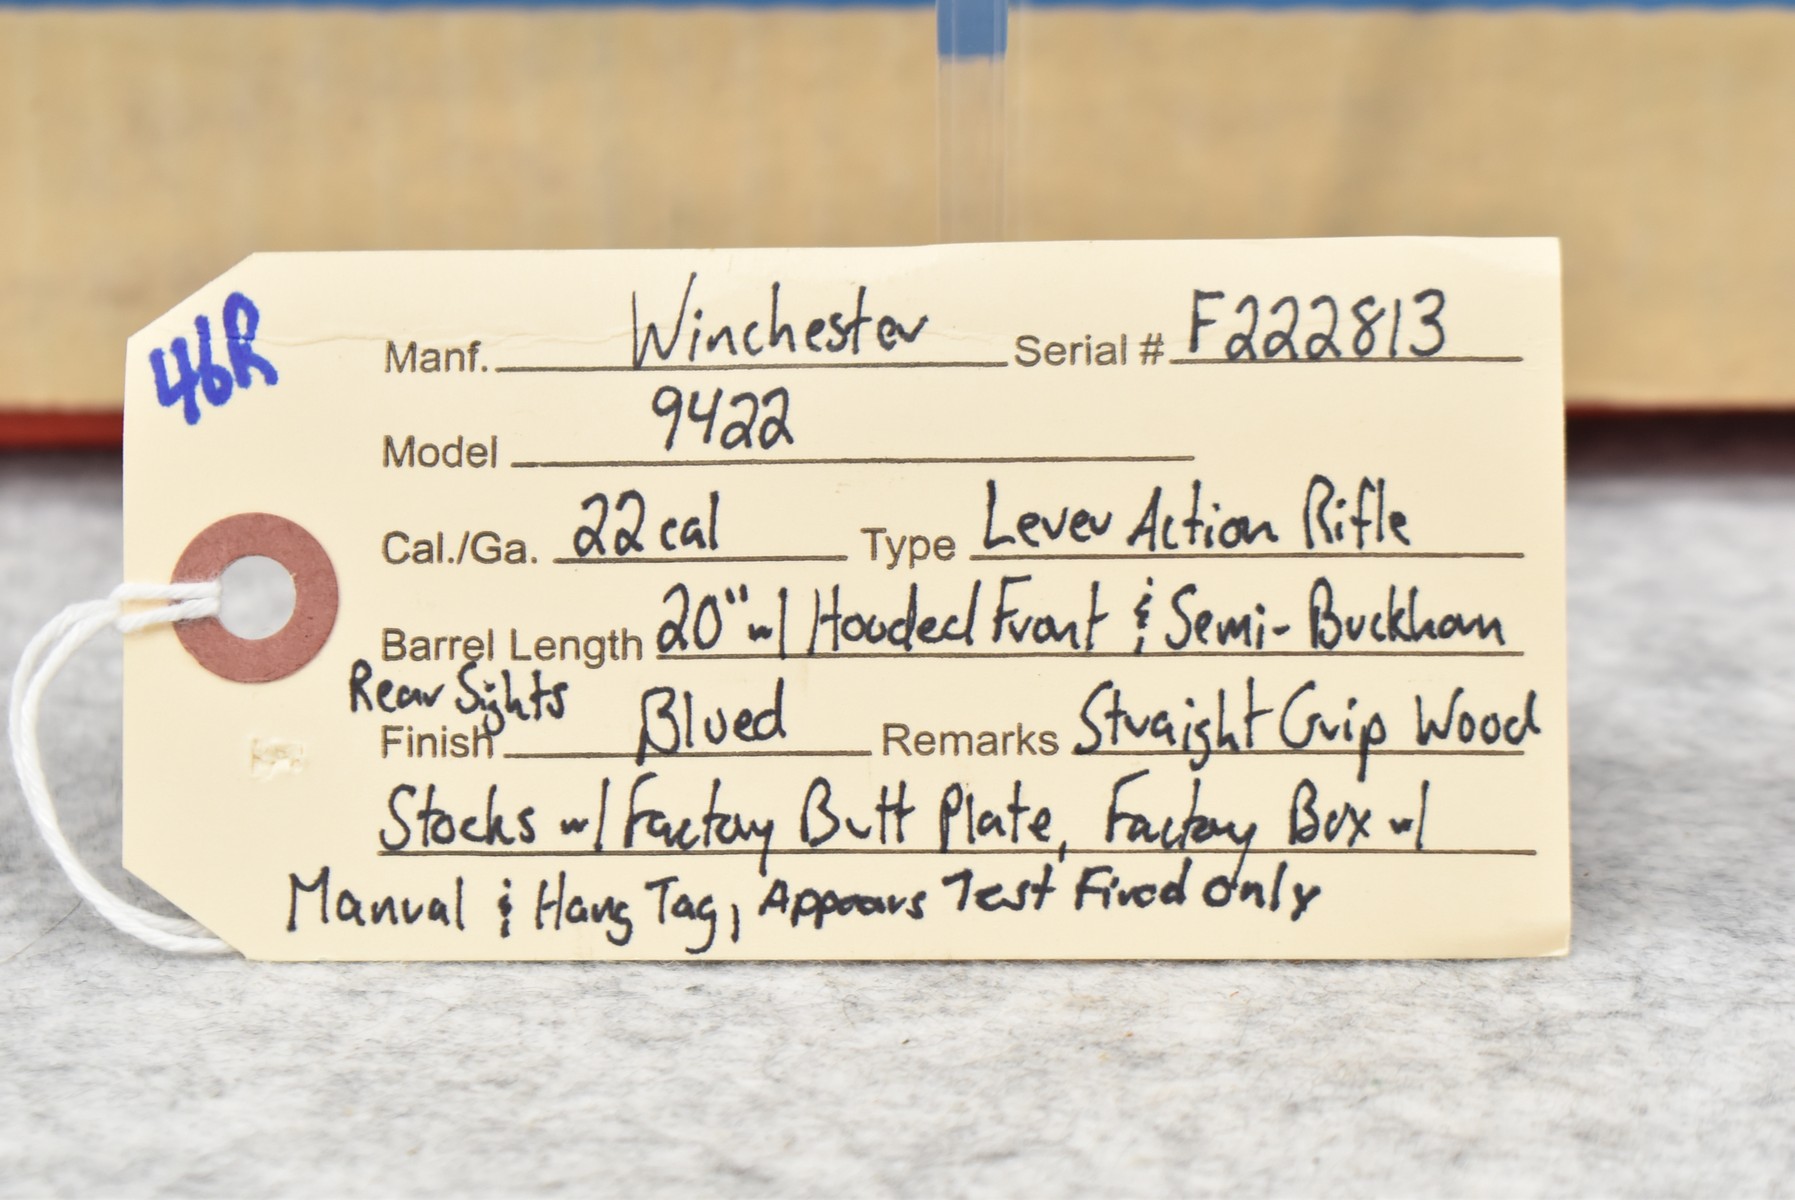 46R
Manf. Winchester Serial # F222813
Model 9422
Cal./Ga. 22 cal Type Lever Action Rifle
Barrel Length 20" w/ Hooded Front & Semi-Buckhorn
Rear Sights
Finish Blued Remarks Straight Grip Wood
Stocks w/ Factory Butt Plate, Factory Box w/
Manual & Hang Tag, Appears Test Fired Only